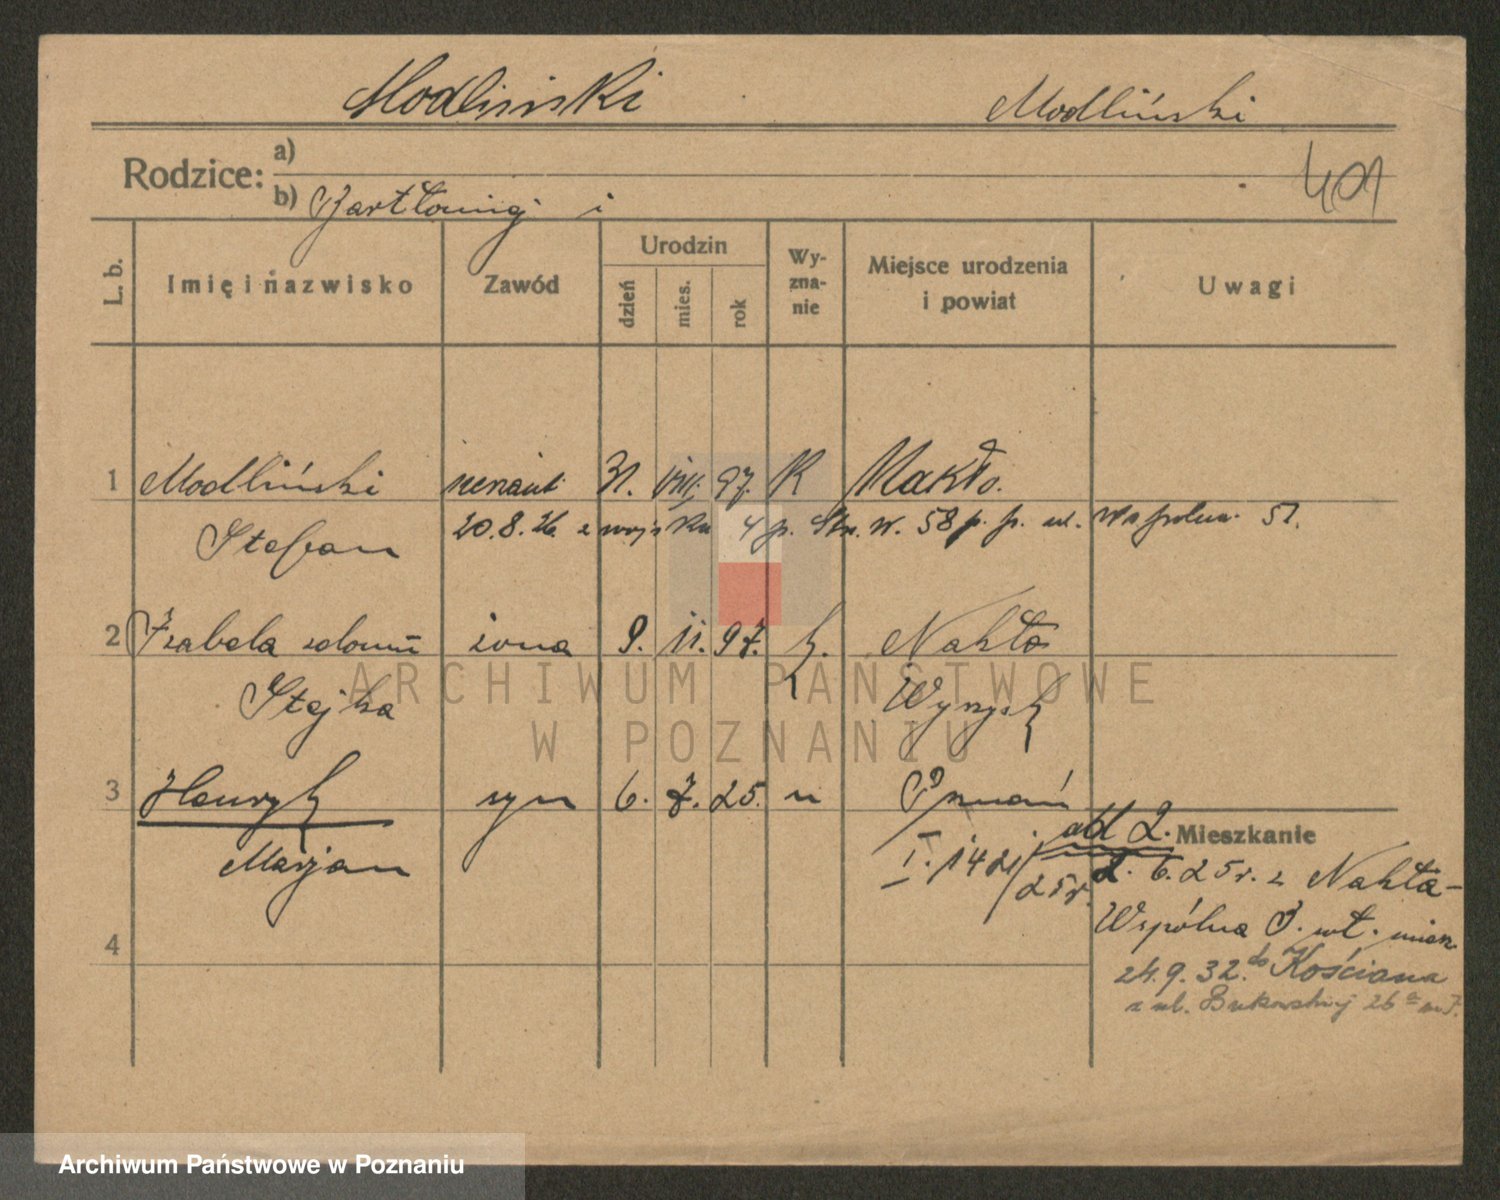 Modliński Modliński
Rodzice: a)
b) Bartłomiej i
401
L. b. Imię i nazwisko Zawód Urodzin dzień mies. rok Wyznanie Miejsce urodzenia i powiat Uwagi
1 Modliński 31. VIII. 97. K Nakło.
Stefan 20.8.26. z wojska 4 p. 58 p. p. ul. Wspólna 51.
2 Izabela żona 9. 11. 97. k. Nakło
Stejka Wyrzysk
3 Henryk syn 6. 7. 25. " Poznań
Marjan I. 1421/25r.
ad 2. Mieszkanie
2. 6. 25 r. z Nakła-
4 Wspólna wł. mieszk.
24.9.32. do Kościana
z ul. Bukowskiej 26a m 7.
ARCHIWUM PAŃSTWOWE
W POZNANIU
Archiwum Państwowe w Poznaniu